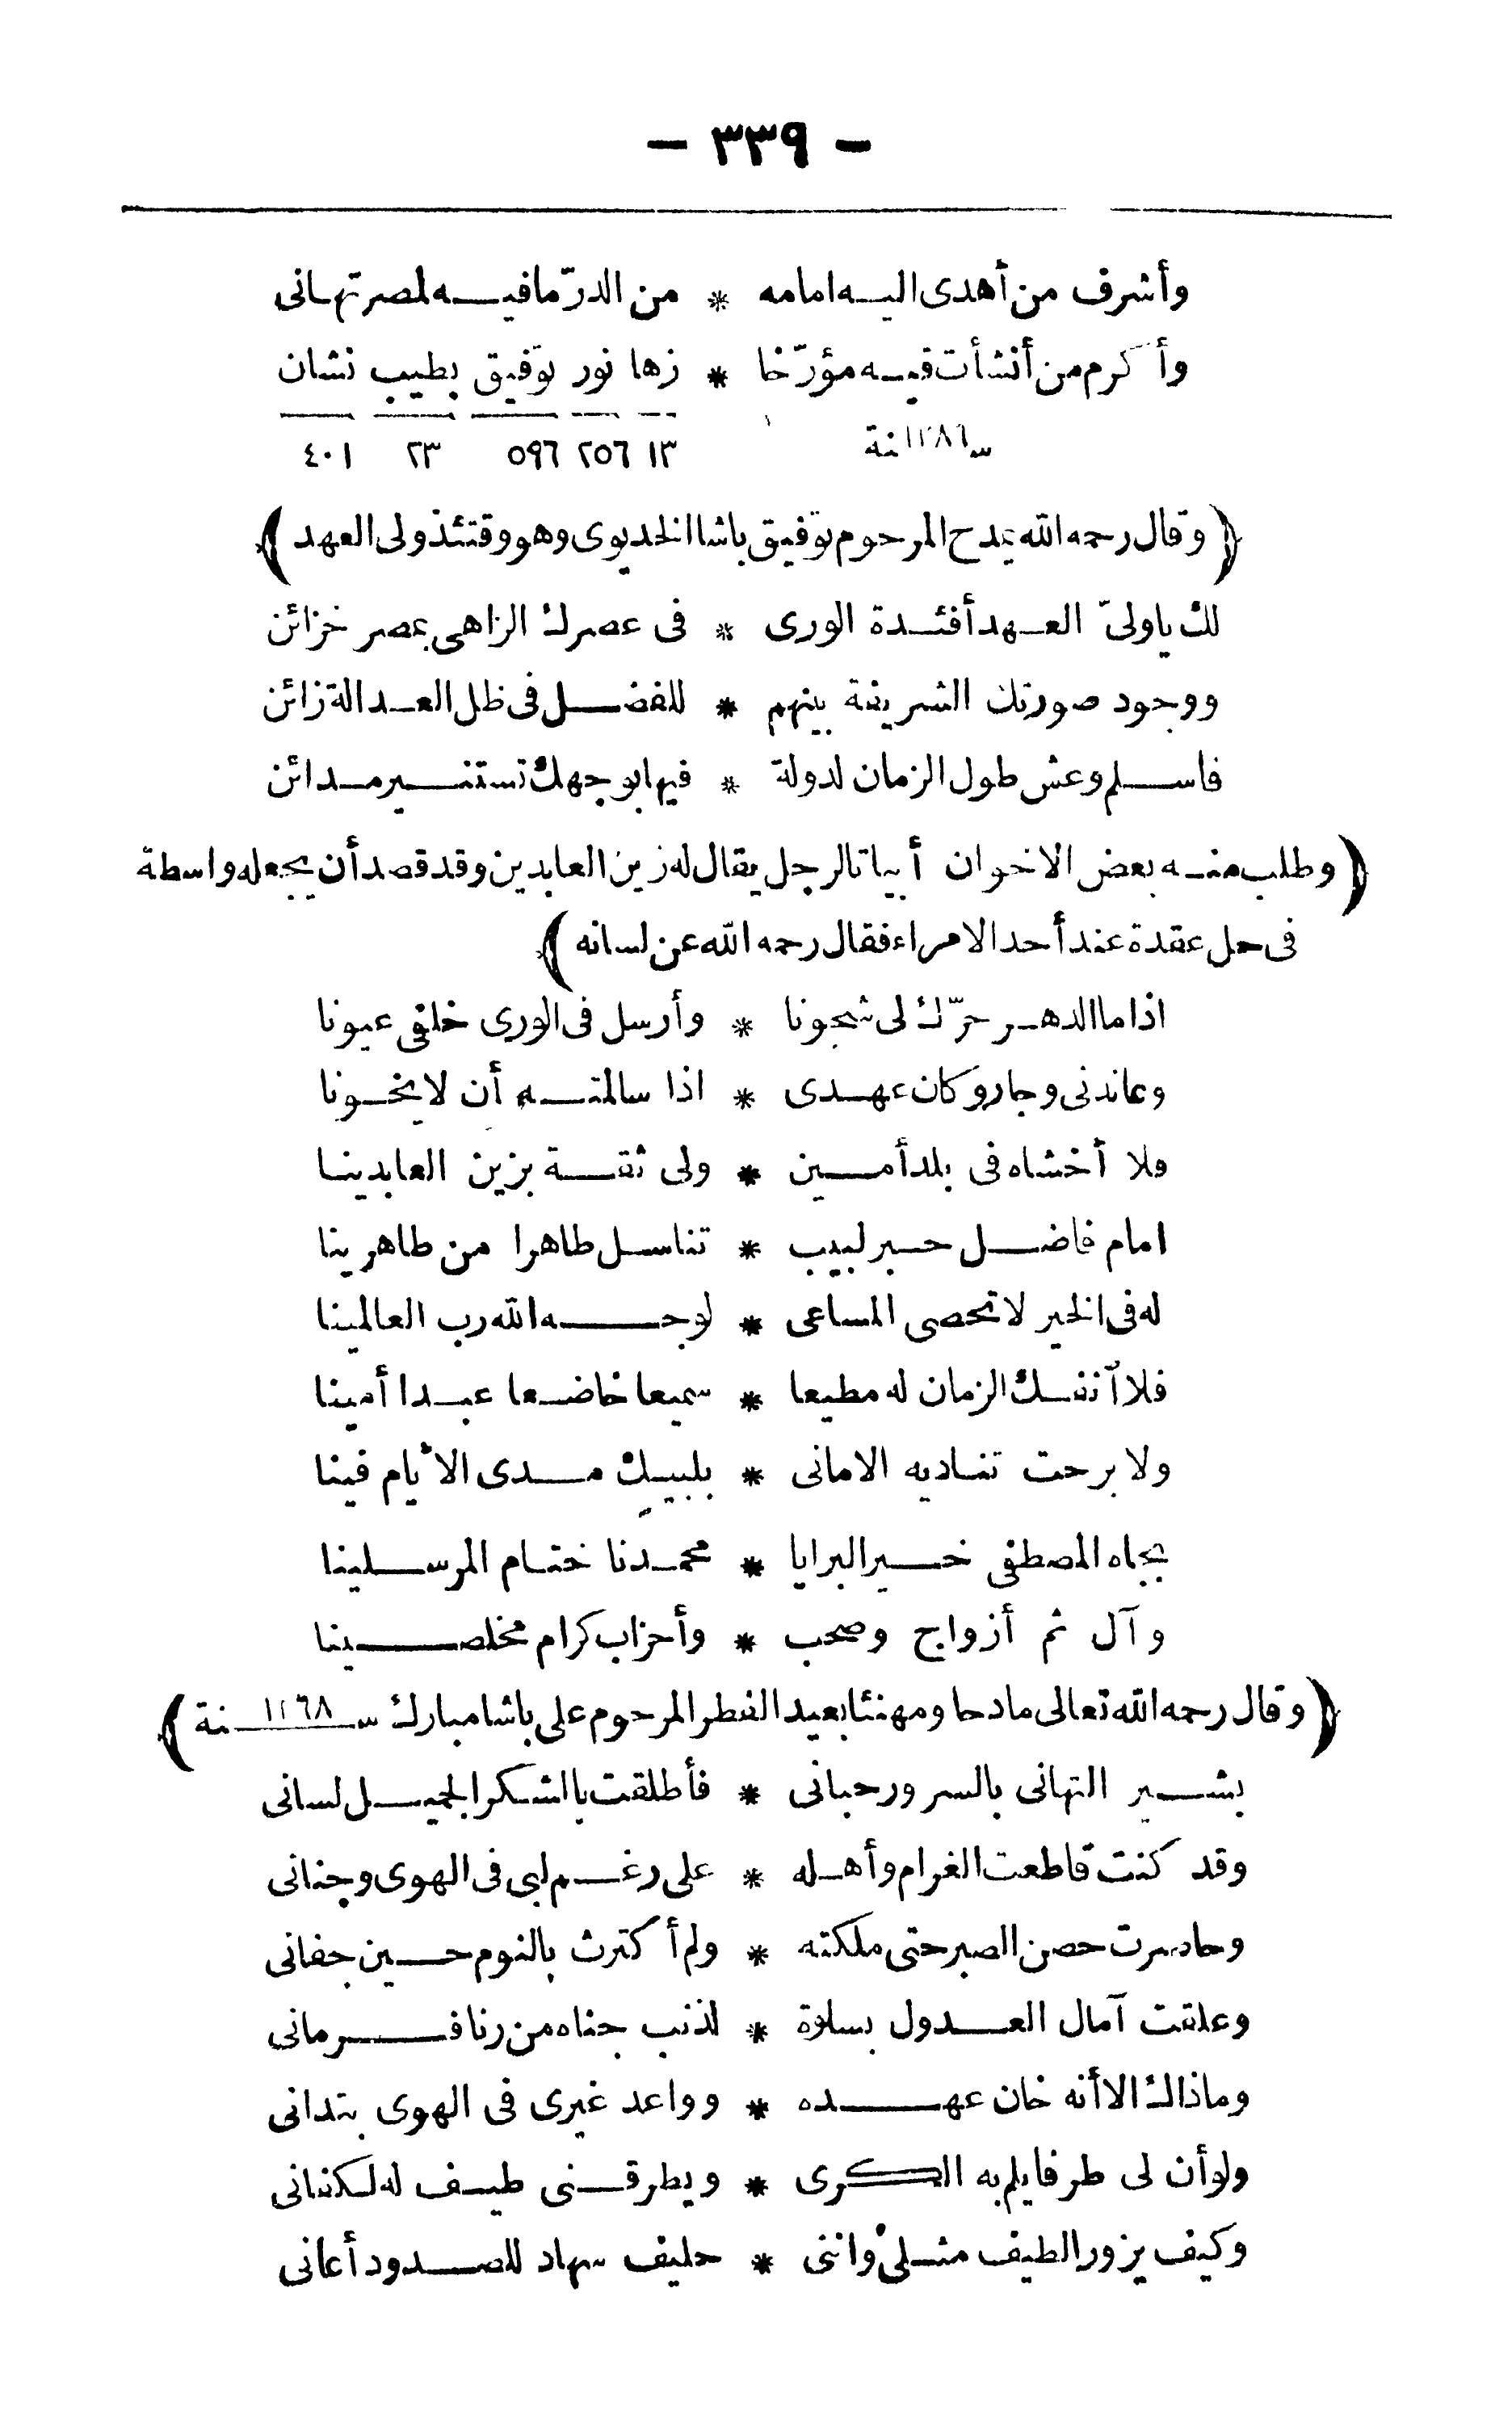 — ٣٣٩ —
وأشرف من أهدى اليه امامه * من الدرّ مافيه لمصر تهانى
وأكرم من أنشأت فيه مؤرّخا * زها نور توفيق بطيب نشان
سنة ١٢٨٦ ١٣ ٢٥٦ ٥٩٦ ٢٣ ٤٠١
﴿وقال رحمه الله يمدح المرحوم توفيق باشا الخديوى وهو وقتئذ ولى العهد﴾
لك ياولىّ العهد أفئدة الورى * فى عصرك الزاهى بمصر خزائن
ووجود صورتك الشريفة بينهم * للفضل فى ظل العدالة زائن
فاسلم وعش طول الزمان لدولة * فيها بوجهك تستنير مدائن
﴿وطلب منه بعض الاخوان أبياتا لرجل يقال له زين العابدين وقد قصد أن يجعله واسطة
فى حل عقدة عند أحد الامراء فقال رحمه الله عن لسانه﴾
اذا ما الدهر حرّك لى شجونا * وأرسل فى الورى خلفى عيونا
وعاندنى وجار وكان عهدى * اذا سالمته أن لا يخونا
فلا أخشاه فى بلد أمين * ولى ثقة بزين العابدينا
امام فاضل حبر لبيب * تناسل طاهرا من طاهرينا
له فى الخير لا تحصى المساعى * لوجه الله رب العالمينا
فلا آنفك الزمان له مطيعا * سميعا خاضعا عبدا أمينا
ولا برحت تناديه الامانى * بلبيك مدى الأيام فينا
بجاه المصطفى خير البرايا * محمدنا ختام المرسلينا
وآل ثم أزواج وصحب * وأحزاب كرام مخلصينا
﴿وقال رحمه الله تعالى مادحا ومهنئا بعيد الفطر المرحوم على باشا مبارك سنة ١٢٦٨﴾
بشير التهانى بالسرور حبانى * فأطلقت بالشكر الجميل لسانى
وقد كنت قاطعت الغرام وأهله * على رغم لبى فى الهوى وجنانى
وحاصرت حصن الصبر حتى ملكته * ولم أكترث بالنوم حين جفانى
وعلقت آمال العدول بسلوة * لذنب جناه من رنا فرمانى
وماذاك الا أنه خان عهده * وواعد غيرى فى الهوى بتدانى
ولو أن لى طرفا يلم به الكرى * ويطرقنى طيف له لكفانى
وكيف يزور الطيف مثلى واننى * حليف سهاد للصدود أعانى